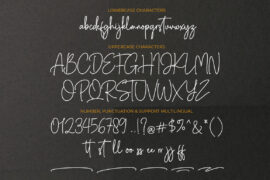 LOWERCASE CHARACTERS
abcdefghijklmnopqrstuvwxyz
UPPERCASE CHARACTERS
ABCDEFGHIJKLMN
OPQRSTUVWXYZ
NUMBER, PUNCTUATION & SUPPORT MULTILINGUAL
0123456789 ..!?@#$%^&*()
tt st ll oo ss ee rr jj ff